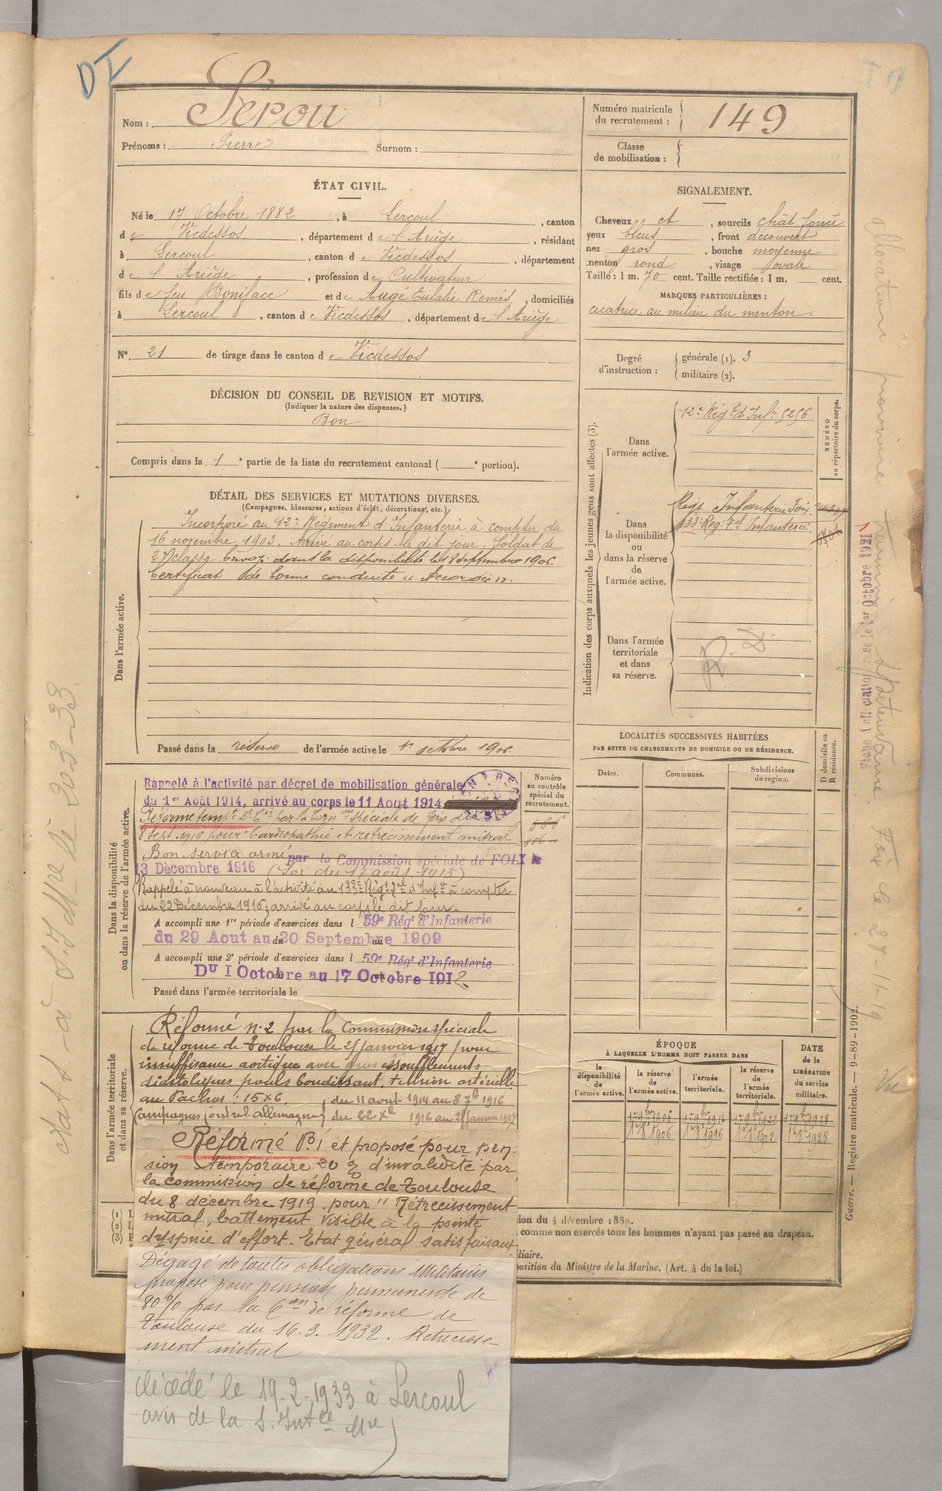 DI
Nom : Serou
Prénoms : Pierre Surnom :
Numéro matricule du recrutement : 149
Classe de mobilisation :
ÉTAT CIVIL.
Né le 17 Octobre 1882, à Lercoul, canton
de Vicdessos, département de l'Ariège, résidant
à Lercoul, canton de Vicdessos, département
de l'Ariège, profession de Cultivateur
fils de feu Boniface et de Augé Eulalie Remés, domiciliés
à Lercoul, canton de Vicdessos, département de l'Ariège
N°. 21 de tirage dans le canton de Vicdessos
SIGNALEMENT.
Cheveux et sourcils chât foncé
yeux bleus, front découvert
nez gros, bouche moyenne
menton rond, visage ovale
Taille : 1 m. 70 cent. Taille rectifiée : 1 m. cent.
MARQUES PARTICULIÈRES :
cicatrice au milieu du menton.
Degré d'instruction : générale (1). 3
militaire (2).
DÉCISION DU CONSEIL DE REVISION ET MOTIFS.
(Indiquer la nature des dispenses.)
Bon
Compris dans la 1e partie de la liste du recrutement cantonal ( e portion).
DÉTAIL DES SERVICES ET MUTATIONS DIVERSES.
(Campagnes, blessures, actions d'éclat, décorations, etc.)
Dans l'armée active.
Incorporé au 12e Régiment d'Infanterie à compter du
16 novembre 1903. Arrivé au corps le dit jour. Soldat de
2e classe. Envoyé dans la disponibilité le 18 septembre 1906.
Certificat de bonne conduite "Accordé".
Passé dans la réserve de l'armée active le 1er octobre 1906
Indication des corps auxquels les jeunes gens sont affectés (3).
Dans l'armée active.
12e Régt d'Infie 5256
NUMÉRO au répertoire du corps.
Dans la disponibilité ou dans la réserve de l'armée active.
Régt Infanterie Foix
133e Reg. Infanterie
Dans l'armée territoriale et dans sa réserve.
LOCALITÉS SUCCESSIVES HABITÉES
PAR SUITE DE CHANGEMENTS DE DOMICILE OU DE RÉSIDENCE.
Dates. Communes. Subdivisions de région. D domicile ou R résidence.
Dans la disponibilité ou dans la réserve de l'armée active.
Numéro au contrôle spécial du recrutement.
Rappelé à l'activité par décret de mobilisation générale
du 1er Août 1914, arrivé au corps le 11 Août 1914
Réformé tempre 2e Cie par la Comon spéciale de Foix du
8 Sept 1916 pour "Cardiopathie et rétrécissement mitral
Bon service armé par la Commission spéciale de FOIX le
13 Décembre 1916 (Loi du 17 août 1915)
Rappelé à nouveau à l'activité au 133e Régt d'Infie à compter
du 22 Décembre 1916, arrivé au corps le dit jour.
A accompli une 1re période d'exercices dans l 59e Régt d'Infanterie
du 29 Aout au 20 Septembre 1909
A accompli une 2e période d'exercices dans l 59e Régt d'Infanterie
Du 1 Octobre au 17 Octobre 1912
Passé dans l'armée territoriale le
Dans l'armée territoriale et dans sa réserve.
Réformé n° 2 par la Commission spéciale
de réforme de Toulouse le 25 janvier 1917 pour
insuffisance aortique avec gros essoufflements
diastoliques pouls bondissant, tension artérielle
au Pachon : 15x6.
Campagnes contre l'Allemagne du 11 aout 1914 au 8 7bre 1916
du 22 Xbre 1916 au 25 Janvier 1917
Réformé P. 1 et proposé pour pen-
sion temporaire 20 % d'invalidité par
la commission de réforme de Toulouse
du 8 décembre 1919. pour "Rétrécissement
mitral, battement visible à la pointe
dyspnée d'effort. Etat général satisfaisant
Dégagé de toutes obligations Militaires
proposé pour pension permanente de
80% par la Con de réforme de
Toulouse du 16.3.1932. Rétrécisse-
ment mitral
décédé le 19-2-1933 à Lercoul
avis de la S. Intce Mre
ÉPOQUE
À LAQUELLE L'HOMME DOIT PASSER DANS
la disponibilité de l'armée active. la réserve de l'armée active. l'armée territoriale. la réserve de l'armée territoriale.
DATE de la LIBÉRATION du service militaire.
1er 8bre 1906 1er 8bre 1916 1er 8bre 1922 1er 8bre 1928
ion du 4 décembre 1889.
comme non exercés tous les hommes n'ayant pas passé au drapeau.
liaire.
position du Ministre de la Marine. (Art. 4 de la loi.)
Guerre. — Registre matricule. — 9-89-1902.